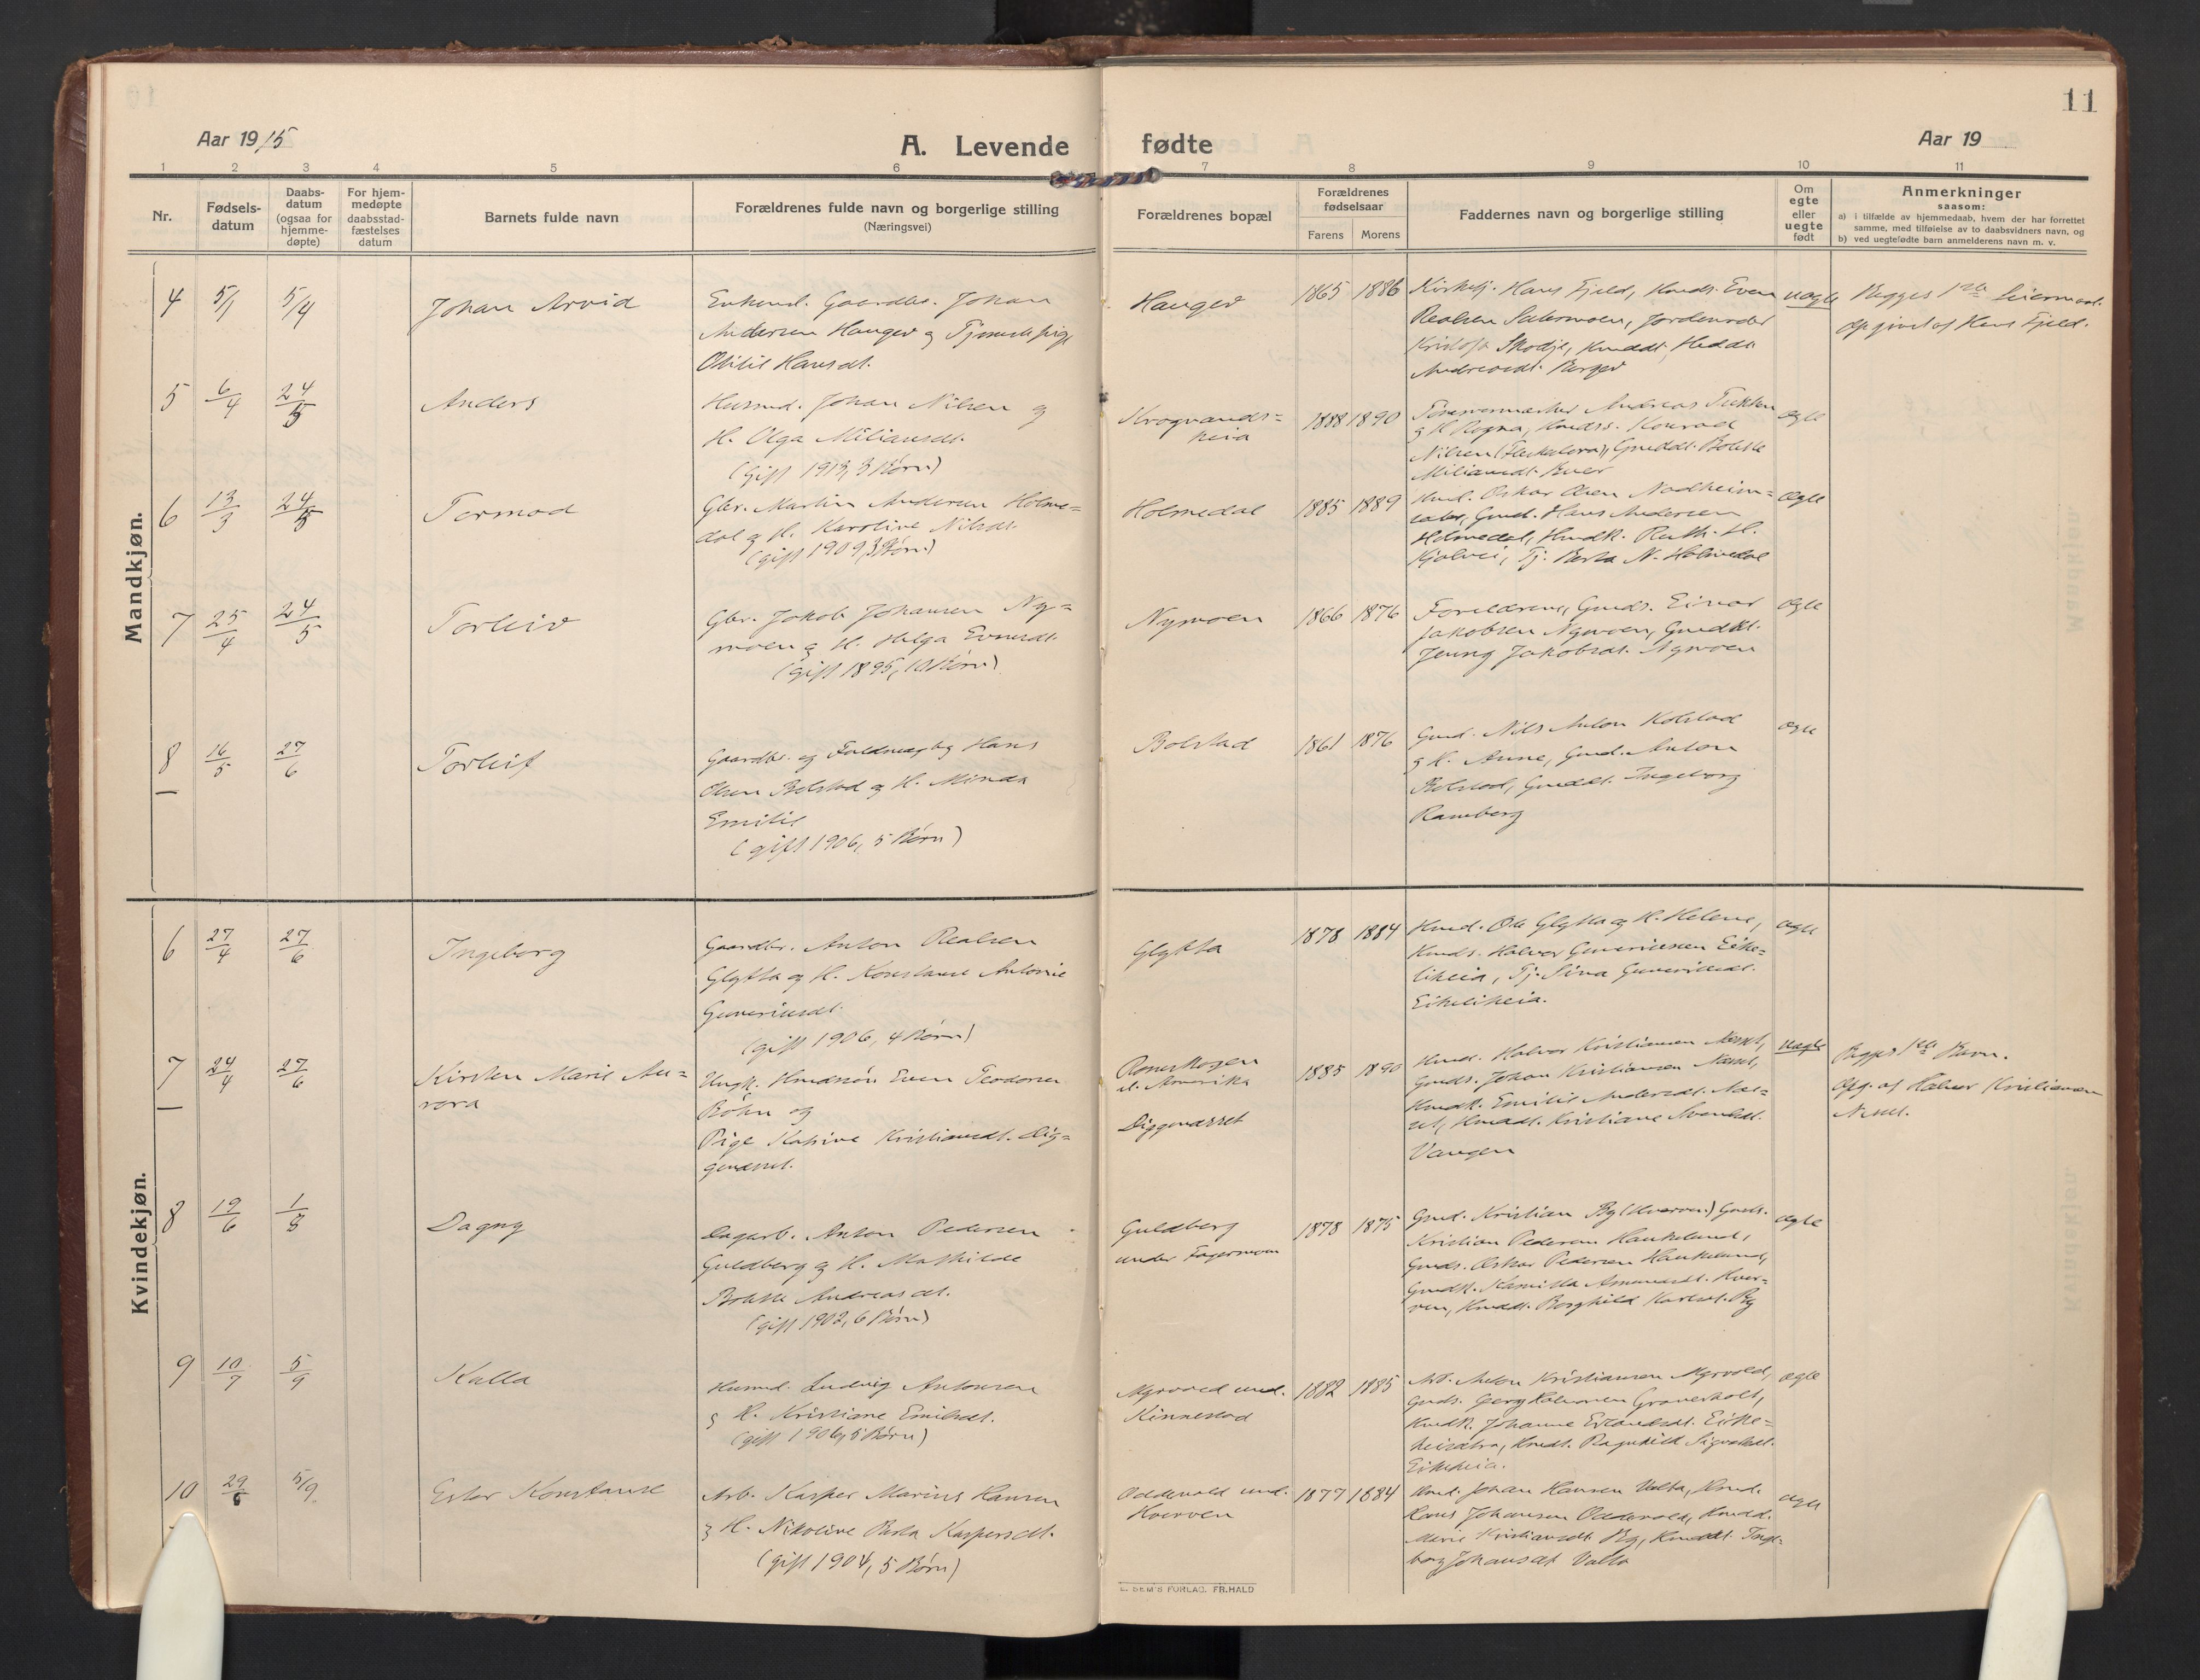 11
Aar 1915
A. Levende fødte
Aar 19
1 2 3 4 5 6 7 8 9 10 11
Nr.
Fødsels-
datum
Daabs-
datum
(ogsaa for
hjemme-
døpte)
For hjem-
medøpte
daabsstad-
fæstelses
datum
Barnets fulde navn
Forældrenes fulde navn og borgerlige stilling
(Næringsvei)
Forældrenes bopæl
Forældrenes
fødselsaar
Farens Morens
Faddernes navn og borgerlige stilling
Om
egte
eller
uegte
født
Anmerkninger
saasom:
a) i tilfælde av hjemmedaab, hvem der har forrettet
samme, med tilføielse av to daabsvidners navn, og
b) ved uegtefødte barn anmelderens navn m. v.
Mandkjøn.
4 5/1 5/4
Johan Arvid
Enkemd. Gaardbr. Johan
Andersen Hauger og Tjenestepige
Otilie Hansdt.
Hauger
1865 1886
Kirketj. Hans Fjeld, Kmds. Even
Realsen Sætermoen, Jordmoder
Kristofa Skodje, Kmddt. Hedda
Andreasdt. Berger
uægte
Begges 1ste Leiermaal.
Opgivet af Hans Fjeld.
5 6/4 24/5
Anders
Husmd. Johan Nilsen og
H. Olga Miliansdt.
(gift 1913, 3 Børn)
Krogvands-
heia
1888 1890
Andreas
og H. Ragna, Kmds. Konrad
Nilsen, Gmddt. Bolette
Miliansdt. Buer
ægte
6 13/3 24/5
Tormod
Gbr. Martin Andersen Holme-
dal og H. Karoline Nilsdt.
(gift 1909, 3 Børn)
Holmedal
1885 1889
Kmd. Oskar Olsen
Gmd. Hans Andersen
Holmedal, Kmdk. Ruth H.
Tj. Berta N. Holmedal
ægte
7 25/4 24/5
Torleiv
Gbr. Jakob Johansen Ny-
moen og H. Helga Evensdt.
(gift 1895, 10 Børn)
Nymoen
1866 1876
Forældrene, Gmds. Einar
Jakobsen Nymoen, Gmddt.
Jenny Jakobsdt. Nymoen
ægte
8 16/5 27/6
Torleif
Gaardbr. og Fuldmægtig Hans
Olsen Bolstad og H. Minda
Emilie
(gift 1906, 5 Børn)
Bolstad
1861 1876
Gmd. Nils Anton Kolstad
og H. Anne, Gmd. Anton
Bolstad, Gmddt. Ingeborg
Ramberg
ægte
Kvindekjøn.
6 27/4 27/6
Ingeborg
Gaardbr. Anton Realsen
Glytta og H. Konstanse Antonie
Guneriusdt.
(gift 1906, 4 Børn)
Glytta
1878 1884
Kmd. Ole Glytta og H. Helene,
Kmds. Halvor Guneriussen Eike-
liheia, Tj. Sina Guneriusdt.
Eikeliheia.
ægte
7 24/4 27/6
Kirsten Marie Au-
rora
Ungk. Husmdssøn Even Teodorsen
Bøhn og
Pige Katrine Kristiansdt. Dig-
generset.
Romskogen
Diggeværset
1885 1890
Kmd. Halvor Kristiansen Næset,
Gmds. Johan Kristiansen Næset,
Kmdk. Emilie Andersdt. Næ-
set, Kmddt. Kristiane Svendsdt.
Vangen
uægte
Begges 1ste Barn.
Opg. af Halvor Kristiansen
Næset.
8 19/6 1/8
Dagny
Dagarb. Anton Pedersen
Guldberg og H. Mathilde
Bolette Andreasdt.
(gift 1902, 6 Børn)
Guldberg
under Fagermoen
1878 1875
Gmd. Kristian By (Kverven) Gmds.
Kristian Pedersen Haukelund,
Gmds. Oskar Pedersen Haukelund,
Gmdk. Kamilla Amundsdt. Kver-
ven, Kmddt. Borghild Karlsdt. By
ægte
9 10/7 5/9
Kalla
Husmd. Ludvig Antonsen
og H. Kristiane Emilsdt.
(gift 1906, 5 Børn)
Myrvold und.
Kinnestad
1882 1885
Arb. Anton Kristiansen Myrvold,
Gmds. Georg Graverholt,
Kmdk. Johanne Erlandsdt. Eike-
Kmdt. Ragnhild Sigvaldsdt.
Eikeheia.
ægte
10 29/6 5/9
Ester Konstanse
Arb. Kasper Marius Hansen
og H. Nikoline Berta Kaspersdt.
(gift 1904, 5 Børn)
Oddevold und.
Kverven
1877 1884
Kmd. Johan Hansen Valta, Kmd.
Hans Johansen Oddevold, Kmdd.
Marie Kristiansdt. By, Kmddt. Inge-
borg Johansdt Valta
ægte
E. SEM'S FORLAG. FR.HALD